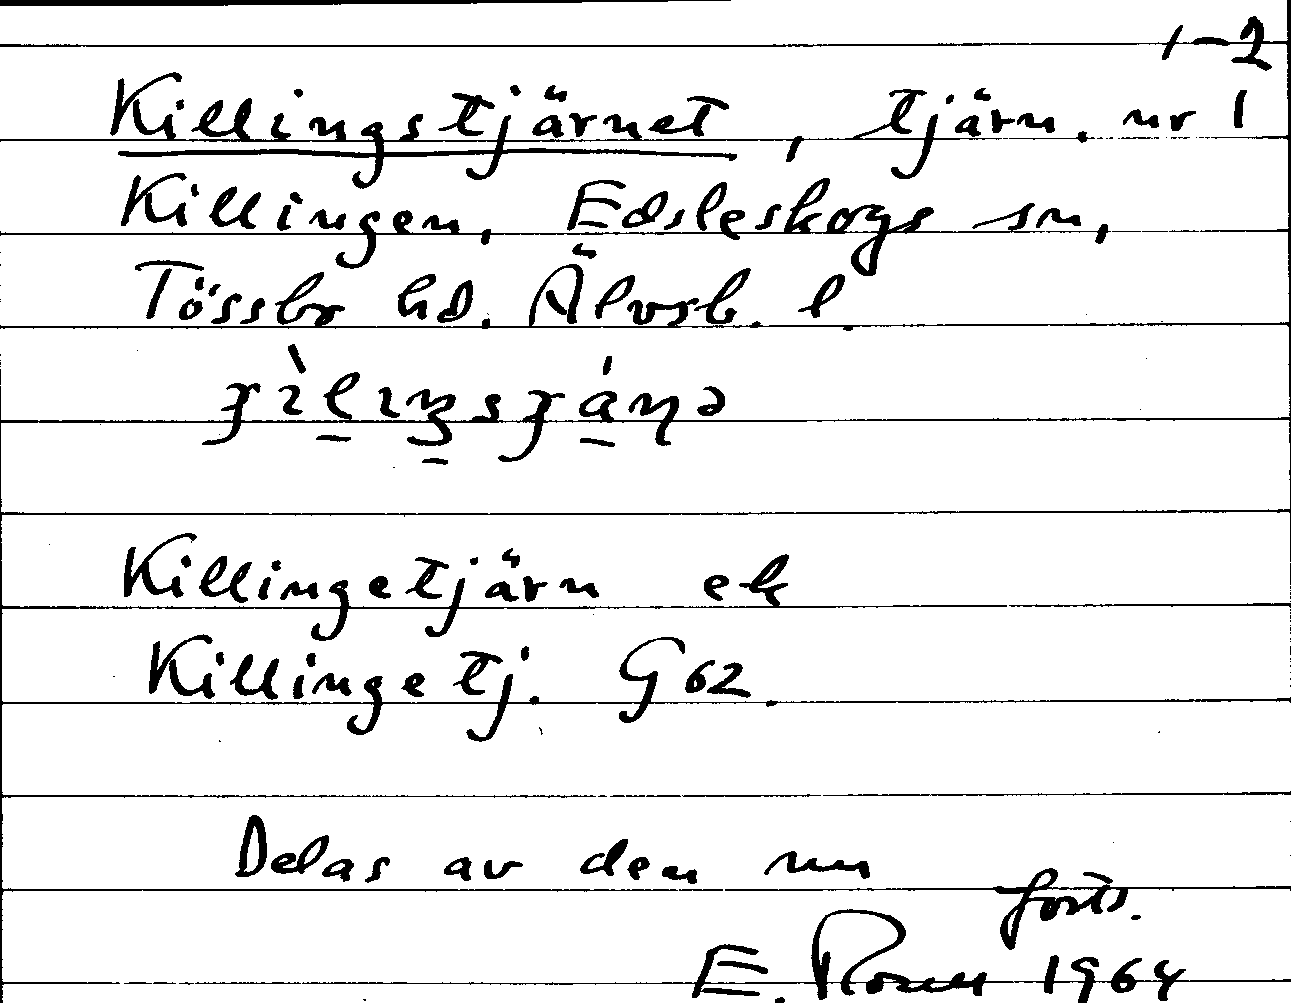 1-2
Killingstjärnet, tjärn. nr 1
Killingen, Edsleskogs sn,
Tössbo hd. Älvsb. l.
Killingetjärn ek
Killingetj. G 62.
Delas av den nu
forts.
E. 1964